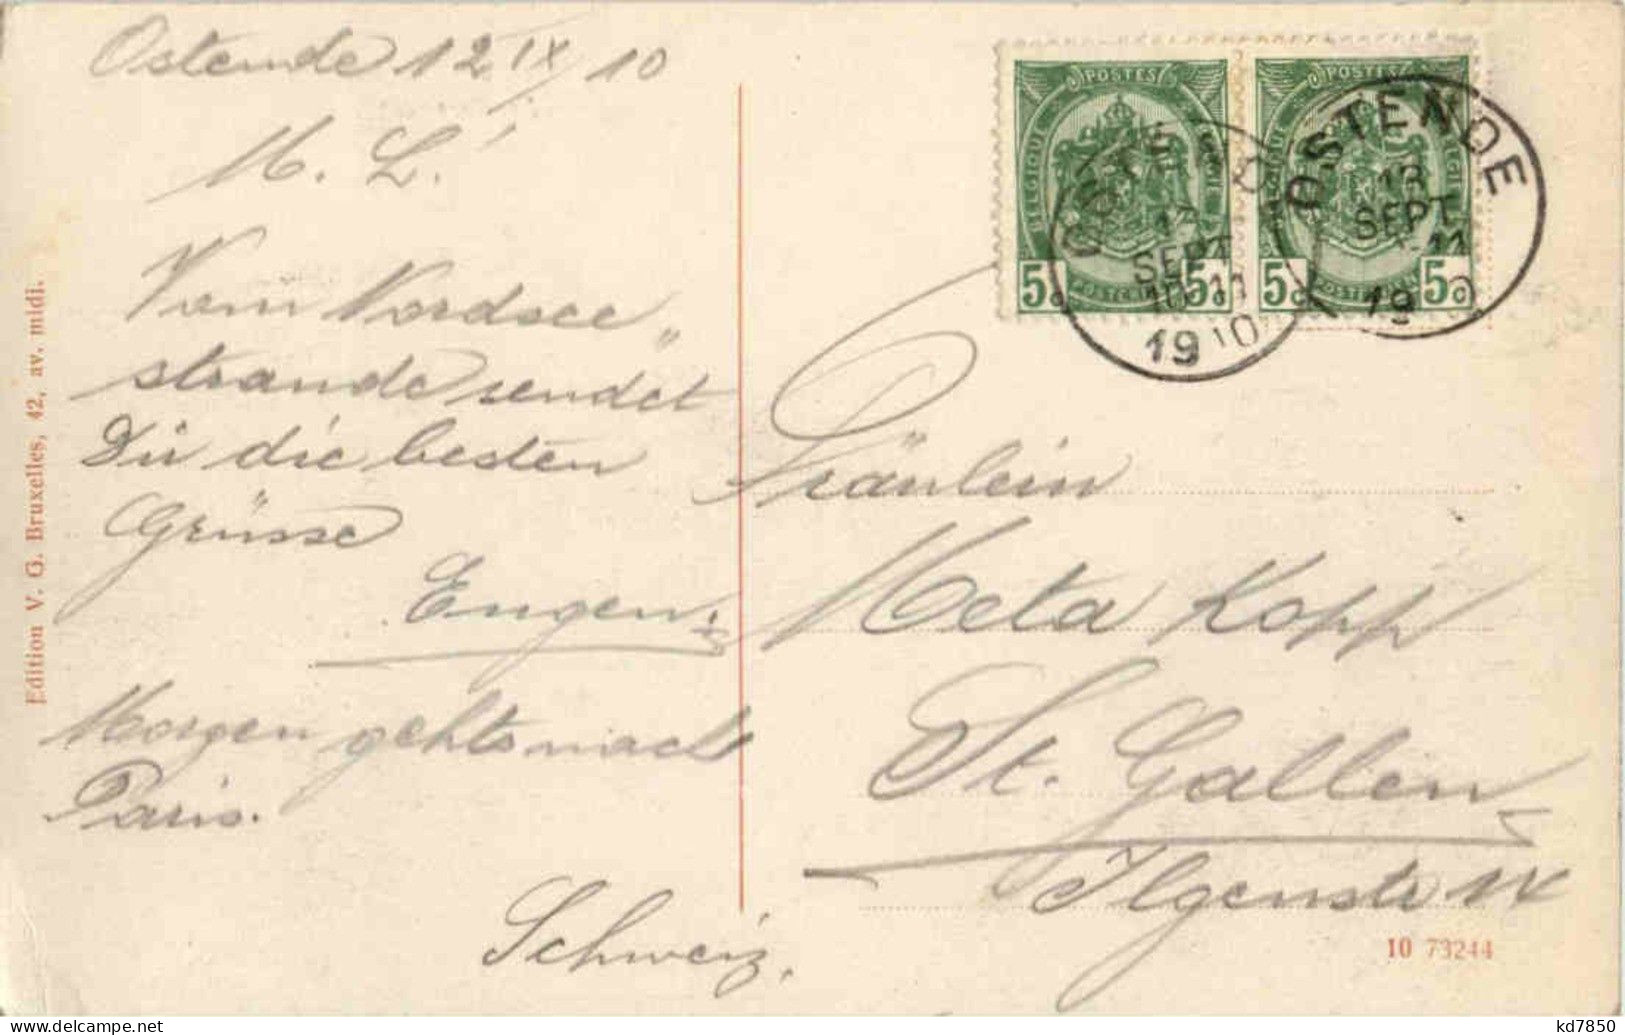 Ostende 12 IX 10
M. L.!
Vom Nordsee„
strande sendet
Dir die besten
Grüsse
Eugen.
Morgen gehts nach
Paris.
Fräulein
Meta Kopp
St. Gallen
Ilgenstr 14
Schweiz.
Edition V. G. Bruxelles, 42, av. midi.
10 73244
POSTES
BELGIQUE
5c 5c
POSTES
5c 5c
OSTENDE
SEPT
10-11
1910
OSTENDE
13
SEPT
11
1910
kd7850